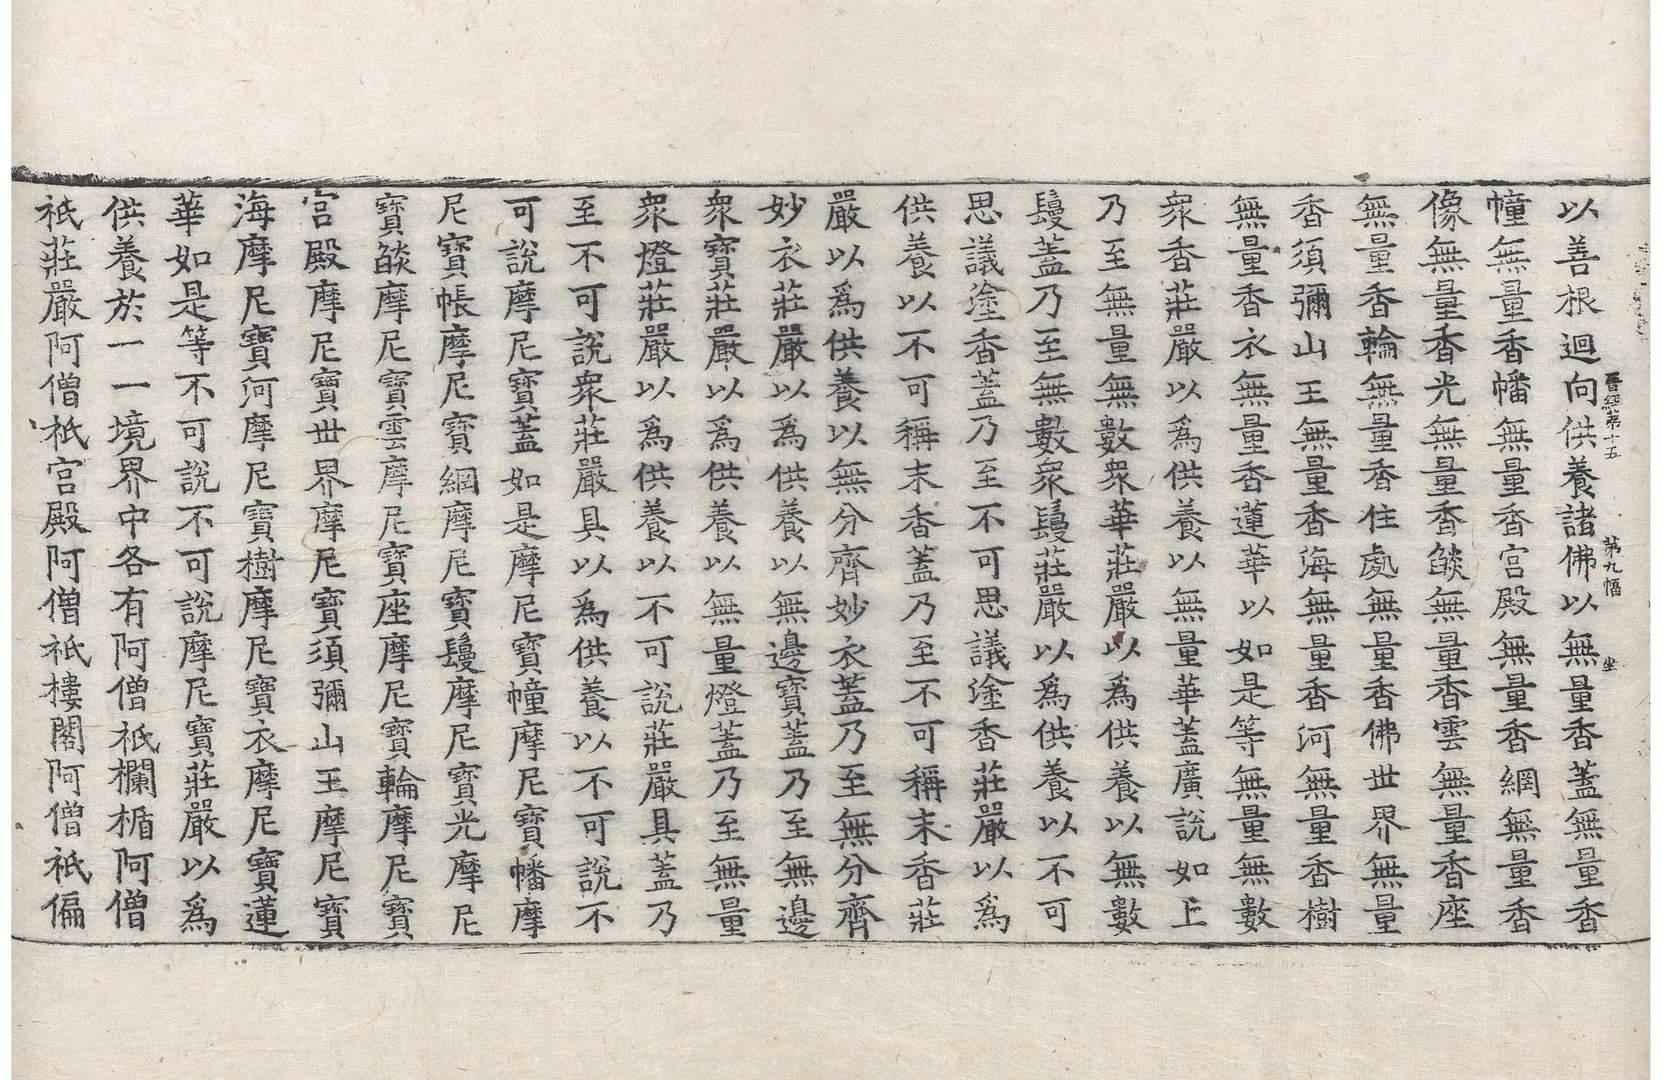 晉經第十五 第九幅 坐
以善根迴向供養諸佛以無量香蓋無量香
幢無量香幡無量香宮殿無量香網無量香
像無量香光無量香燄無量香雲無量香座
無量香輪無量香住處無量香佛世界無量
香須彌山王無量香海無量香河無量香樹
無量香衣無量香蓮華以如是等無量無數
衆香莊嚴以爲供養以無量華蓋廣說如上
乃至無量無數衆華莊嚴以爲供養以無數
鬘蓋乃至無數衆鬘莊嚴以爲供養以不可
思議塗香蓋乃至不可思議塗香莊嚴以爲
供養以不可稱末香蓋乃至不可稱末香莊
嚴以爲供養以無分齊妙衣蓋乃至無分齊
妙衣莊嚴以爲供養以無邊寶蓋乃至無邊
衆寶莊嚴以爲供養以無量燈蓋乃至無量
衆燈莊嚴以爲供養以不可說莊嚴具蓋乃
至不可說衆莊嚴具以爲供養以不可說不
可說摩尼寶蓋如是摩尼寶幢摩尼寶幡摩
尼寶帳摩尼寶網摩尼寶鬘摩尼寶光摩尼
寶燄摩尼寶雲摩尼寶座摩尼寶輪摩尼寶
宮殿摩尼寶世界摩尼寶須彌山王摩尼寶
海摩尼寶河摩尼寶樹摩尼寶衣摩尼寶蓮
華如是等不可說不可說摩尼寶莊嚴以爲
供養於一一境界中各有阿僧祇欄楯阿僧
祇莊嚴阿僧祇宮殿阿僧祇樓閣阿僧祇偏